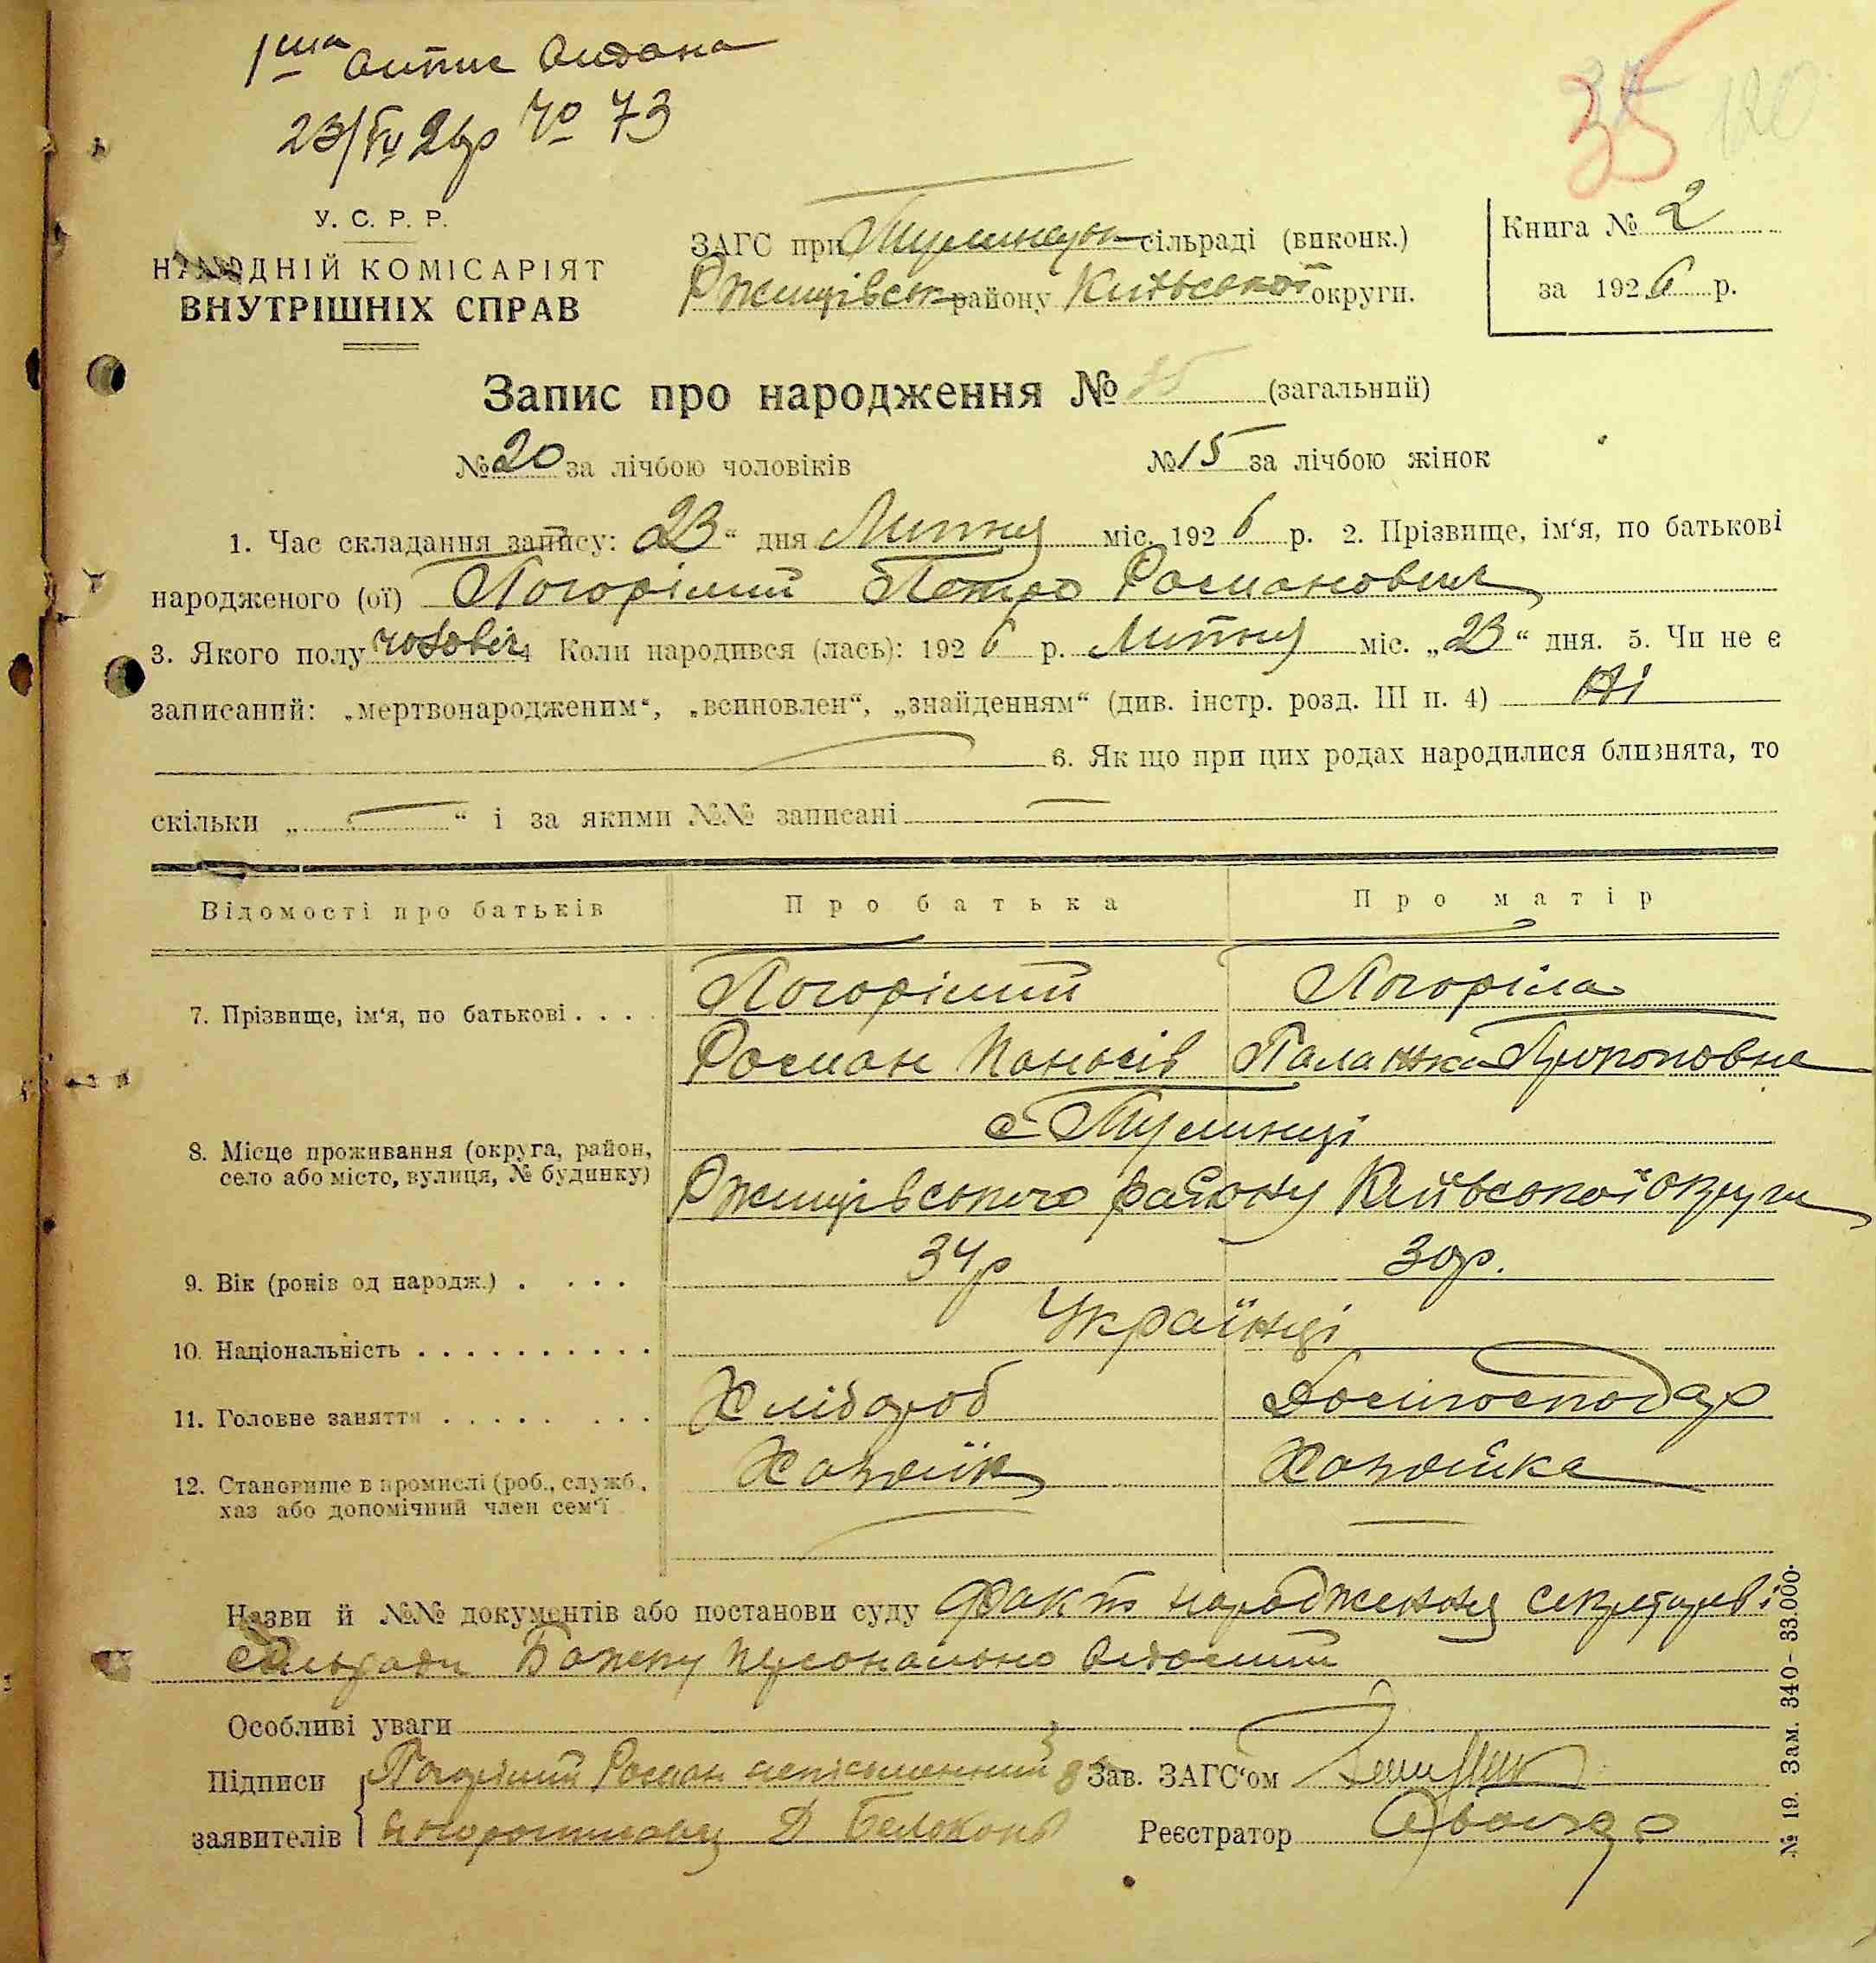 1ша випис видана
23/IV 26р № 73
35 120
У. С. Р. Р.
НАРОДНІЙ КОМІСАРІЯТ
ВНУТРІШНІХ СПРАВ
ЗАГС при Тулинецьк сільраді (виконк.)
Ржищівськ району Київської округи.
Книга № 2
за 1926 р.
Запис про народження № 35 (загальний)
№ 20 за лічбою чоловіків № 15 за лічбою жінок
1. Час складання запису: 23 “ дня Липня міс. 1926 р. 2. Прізвище, ім‘я, по батькові
народженого (ої) Погорілий Петро Романович
3. Якого полу чоловіч 4 Коли народився (лась): 1926 р. Липня міс. „23“ дня. 5. Чи не є
записаний: „мертвонародженим“, „всиновлен“, „знайденням“ (див. інстр. розд. III п. 4) Ні
6. Як що при цих родах народилися близнята, то
скільки „ “ і за якими №№ записані
Відомості про батьків Про батька Про матір
7. Прізвище, ім‘я, по батькові . . . . Погорілий Погоріла
Роман Панасів Палажка Прокоповна
с Тулинці
8. Місце проживання (округа, район,
село або місто, вулиця, № будинку) Ржищівського району Київської округи
9. Вік (років од народж.) . . . . 34р 30р.
10. Національність . . . . . . . . . . Українці
11. Головне заняття . . . . . . . . Хлібороб Домогосподар
12. Становище в промислі (роб., служб., Хазяїн Хазяйка
хаз або допомічний член сем‘ї
Назви й №№ документів або постанови суду Факт народження секретареві
сільради персонально відомий
Особливі уваги
Підписи Погорілий Роман неписьменний Зав. ЗАГС‘ом
заявителів Д Белоконь Реєстратор
№ 19. Зам. 340- 33.000·